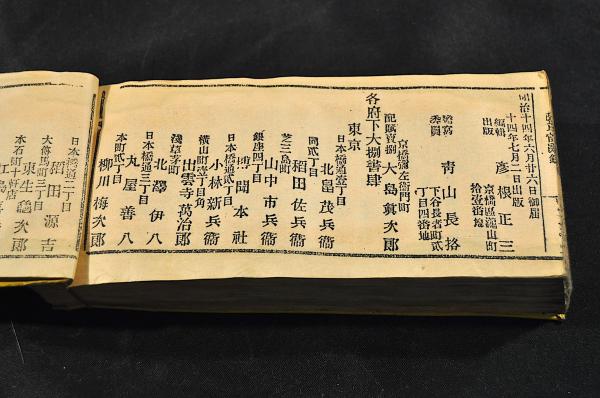 明治十四年六月廿六日御届
十四年七月一日出版
編輯
出版
彦根正三
京橋區瀧山町
拾壹番地
謄寫
委囑
青山長格
下谷長者町貳
丁目四番地
配賦賣捌
京橋彌左衛門町
大島眞次郎
各府下大捌書肆
東京
日本橋通壹丁目
北畠茂兵衞
同貳丁目
稻田佐兵衞
芝三島町
山中市兵衞
銀座四丁目
博聞本社
日本橋通貳丁目
小林新兵衞
橫山町壹丁目角
出雲寺萬治郎
淺草茅町
北澤伊八
日本橋通三丁目
丸屋善八
本町貳丁目
柳川梅次郎
日本橋通二丁目
稻田源吉
大傳馬町三丁目
東生龜次郎
本石町十軒店
江島喜兵衞